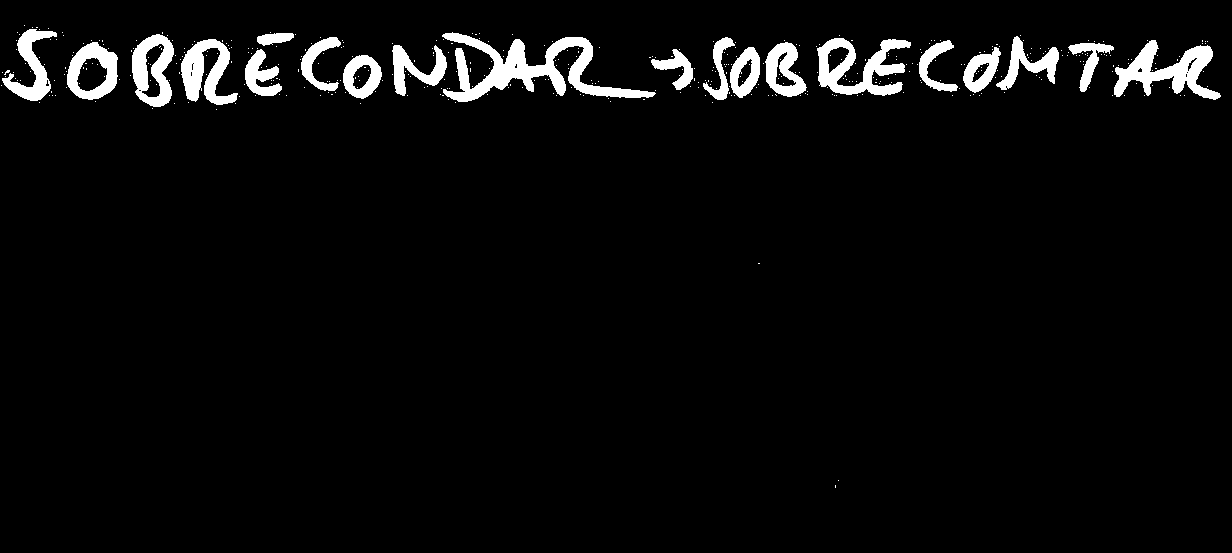 SOBRECONDAR → SOBRECOMTAR